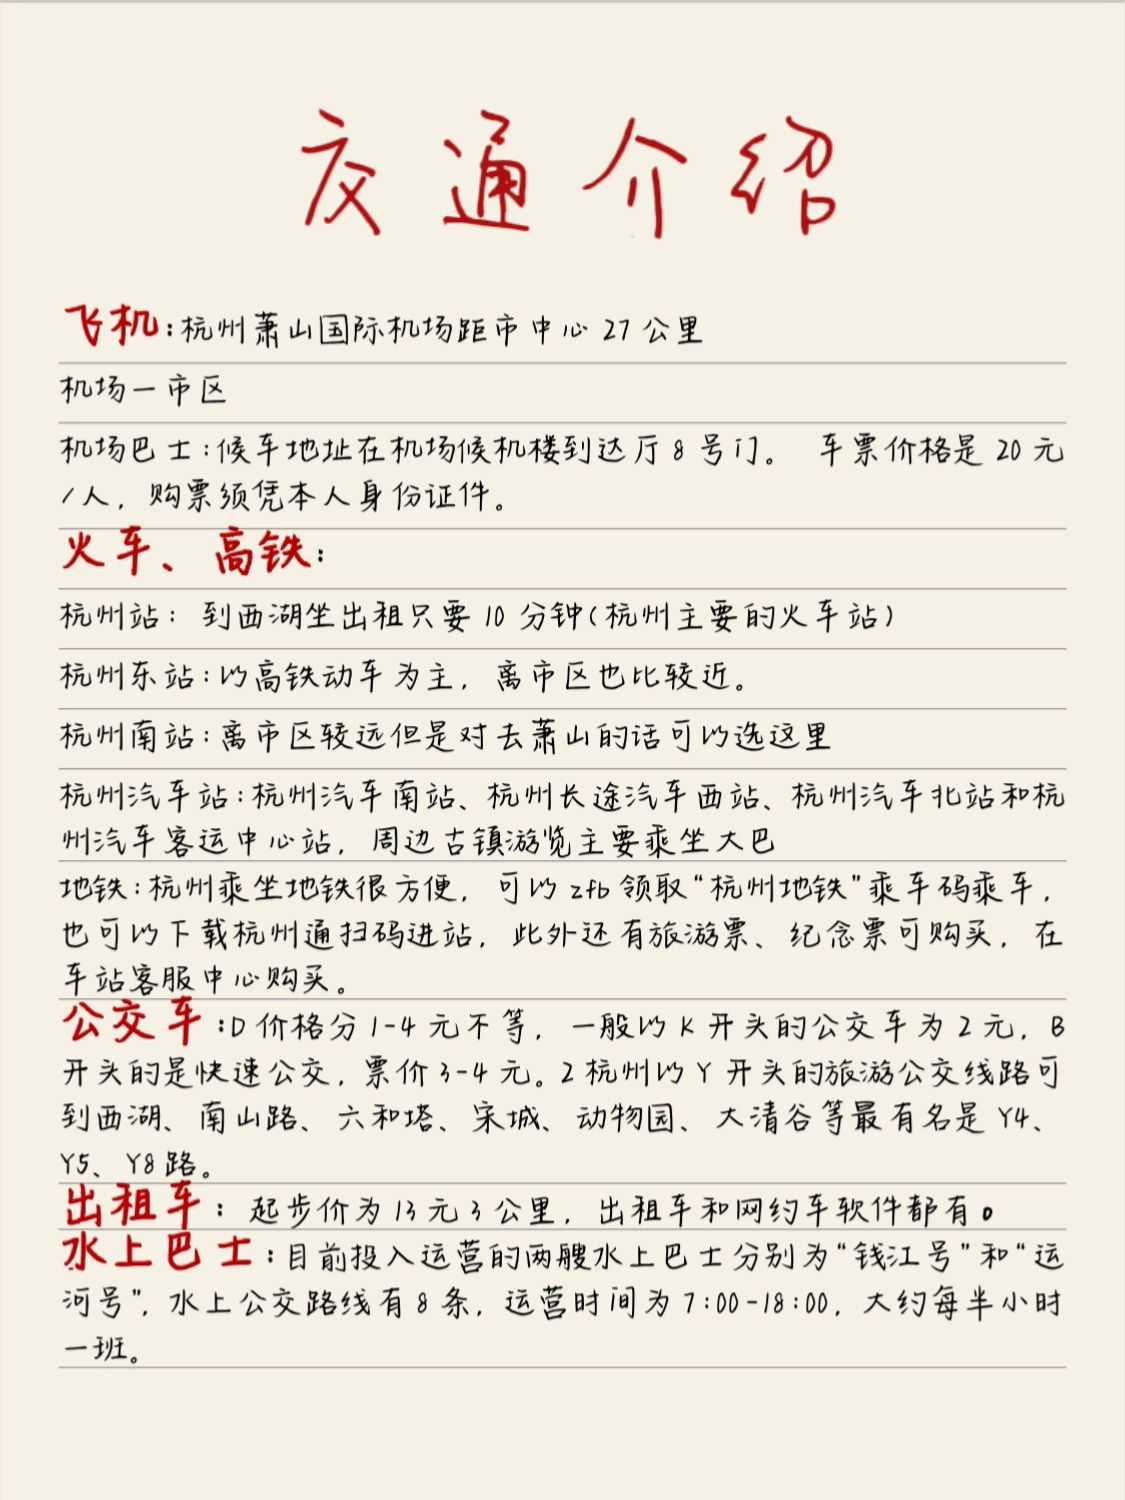 交通介绍
飞机:杭州萧山国际机场距市中心27公里
机场一市区
机场巴士:候车地址在机场候机楼到达厅8号门。 车票价格是20元
/人，购票须凭本人身份证件。
火车、高铁:
杭州站: 到西湖坐出租只要10分钟(杭州主要的火车站)
杭州东站:以高铁动车为主，离市区也比较近。
杭州南站:离市区较远但是对去萧山的话可以选这里
杭州汽车站:杭州汽车南站、杭州长途汽车西站、杭州汽车北站和杭
州汽车客运中心站，周边古镇游览主要乘坐大巴
地铁:杭州乘坐地铁很方便，可以zfb领取“杭州地铁”乘车码乘车，
也可以下载杭州通扫码进站，此外还有旅游票、纪念票可购买，在
车站客服中心购买。
公交车:D价格分1-4元不等，一般以K开头的公交车为2元，B
开头的是快速公交，票价3-4元。2杭州以Y开头的旅游公交线路可
到西湖、南山路、六和塔、宋城、动物园、大清谷等最有名是Y4、
Y5、Y8路。
出租车: 起步价为13元3公里，出租车和网约车软件都有。
水上巴士:目前投入运营的两艘水上巴士分别为“钱江号”和“运
河号”，水上公交路线有8条，运营时间为7:00-18:00，大约每半小时
一班。